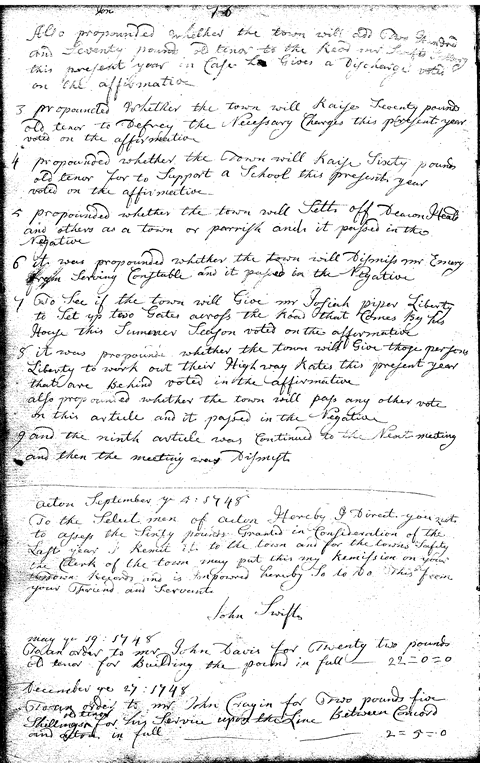 Also propounded whether the town will add Two Hundred
and Seventy pound old tenor to the Revd mr Swifts
this present year in Case he Gives a Discharge voted
on the affirmative
3 propounded Whether the town will Raise Seventy pounds
old tenor to Defrey the Necessary Charges this present year
voted on the affirmative
4 propounded whether the Town will Raise Sixty pounds
old tenor for to Support a School this present year
voted on the affirmative
5 propounded whether the town will Setts off Deacon Heald
and others as a town or parrish and it passed in the
Negative
6 it was propounded whether the town will Dismiss mr Emery
from Serving Constable and it passed in the Negative
7 To See if the town will Give mr Josiah piper Liberty
to Set up two Gates across the Road that Comes By his
House this Summer Season voted on the affirmative
8 it was propounded whether the town will Give those persons
Liberty to work out their High way Rates this present year
that are Behind voted in the affirmative
also propounded whether the town will pass any other vote
on this article and it passed in the Negative
9 and the ninth article was Continued to the Next meeting
and then the meeting was Dismist
acton September ye 5: 1748
To the Select men of acton Hereby I Direct you not
to assess the Sixty pounds Granted in Consideration of the
Last year I Remit it to the town and for the towns Safty
the Clerk of the town may put this my Remission on your
Town Records and is Impowred hereby So to Do This from
your Friend and Servant
John Swift
may ye 19: 1748
Town order to mr John Davis for Twenty two pounds
old tenor for Building the pound in full 22=0=0
December ye 27: 1748
Town order to mr John Cragin for Two pounds five
Shillings old tenor for his Service upon the Line Between Concord
and acton in full 2=5=0